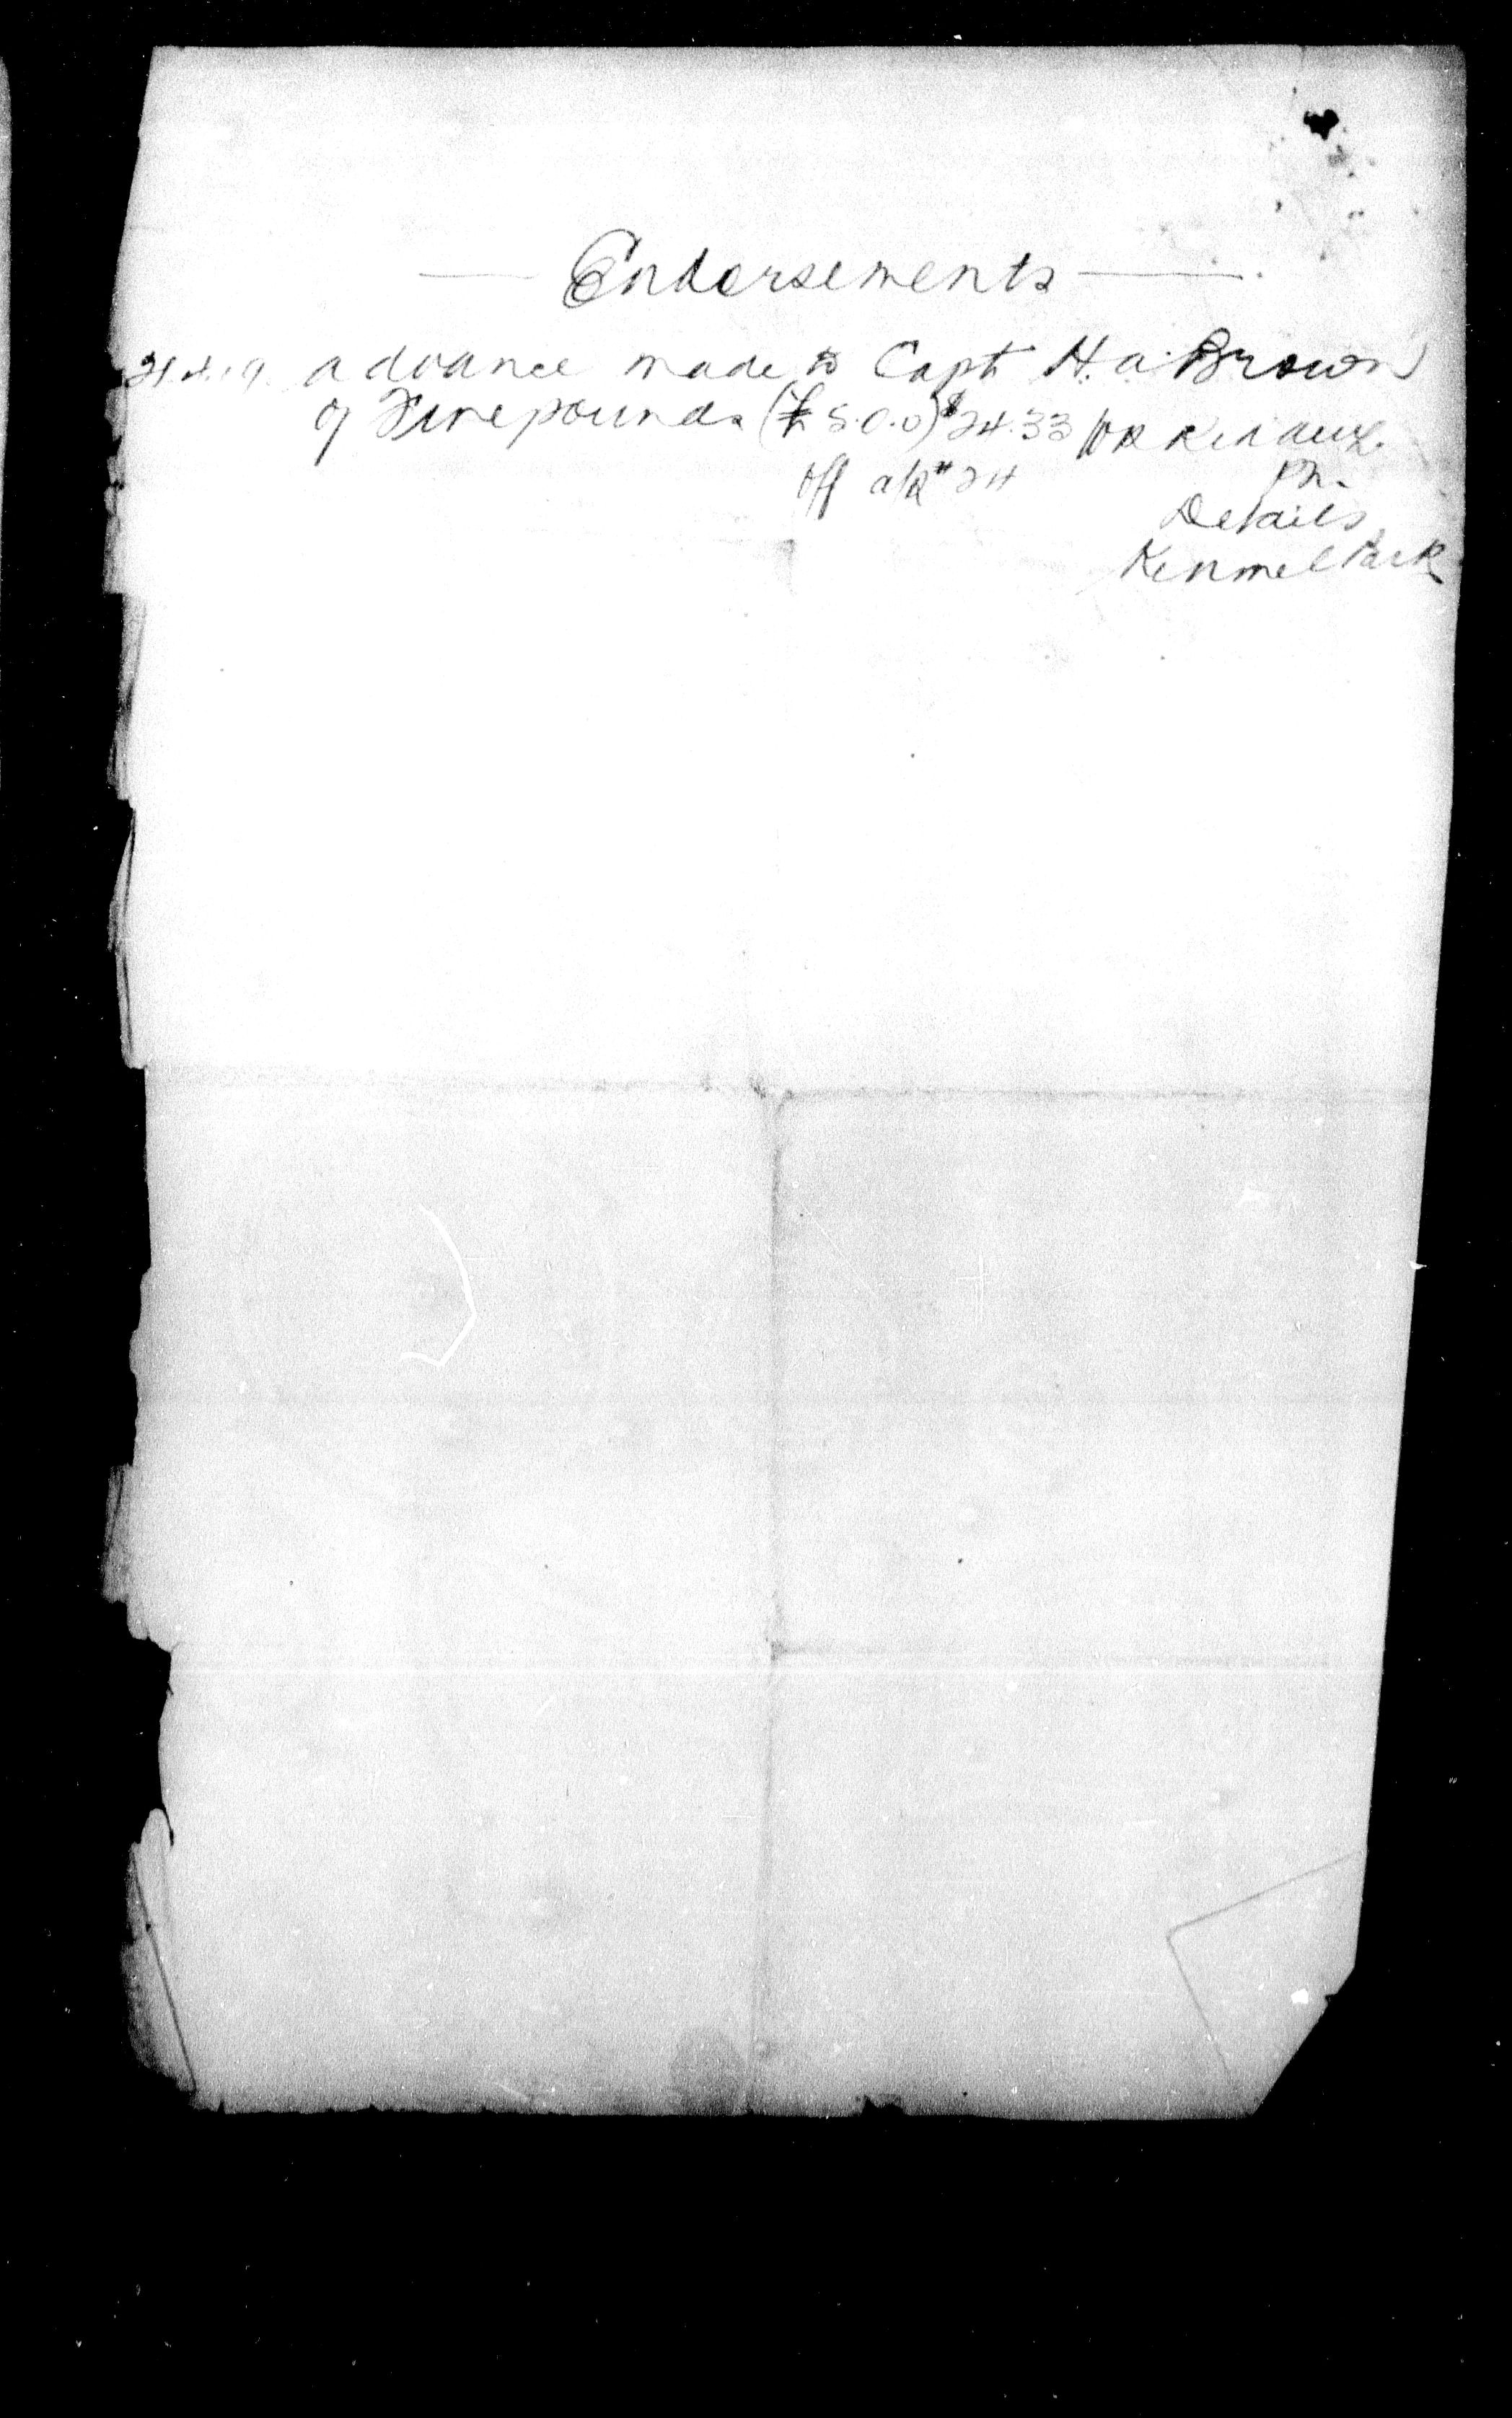 Endorsements
advance made to Capt H. a. Brown
of Five pounds (£ 5.0.0) $24.33
Off a/R # 24 Pm.
Details
Kinmel Park